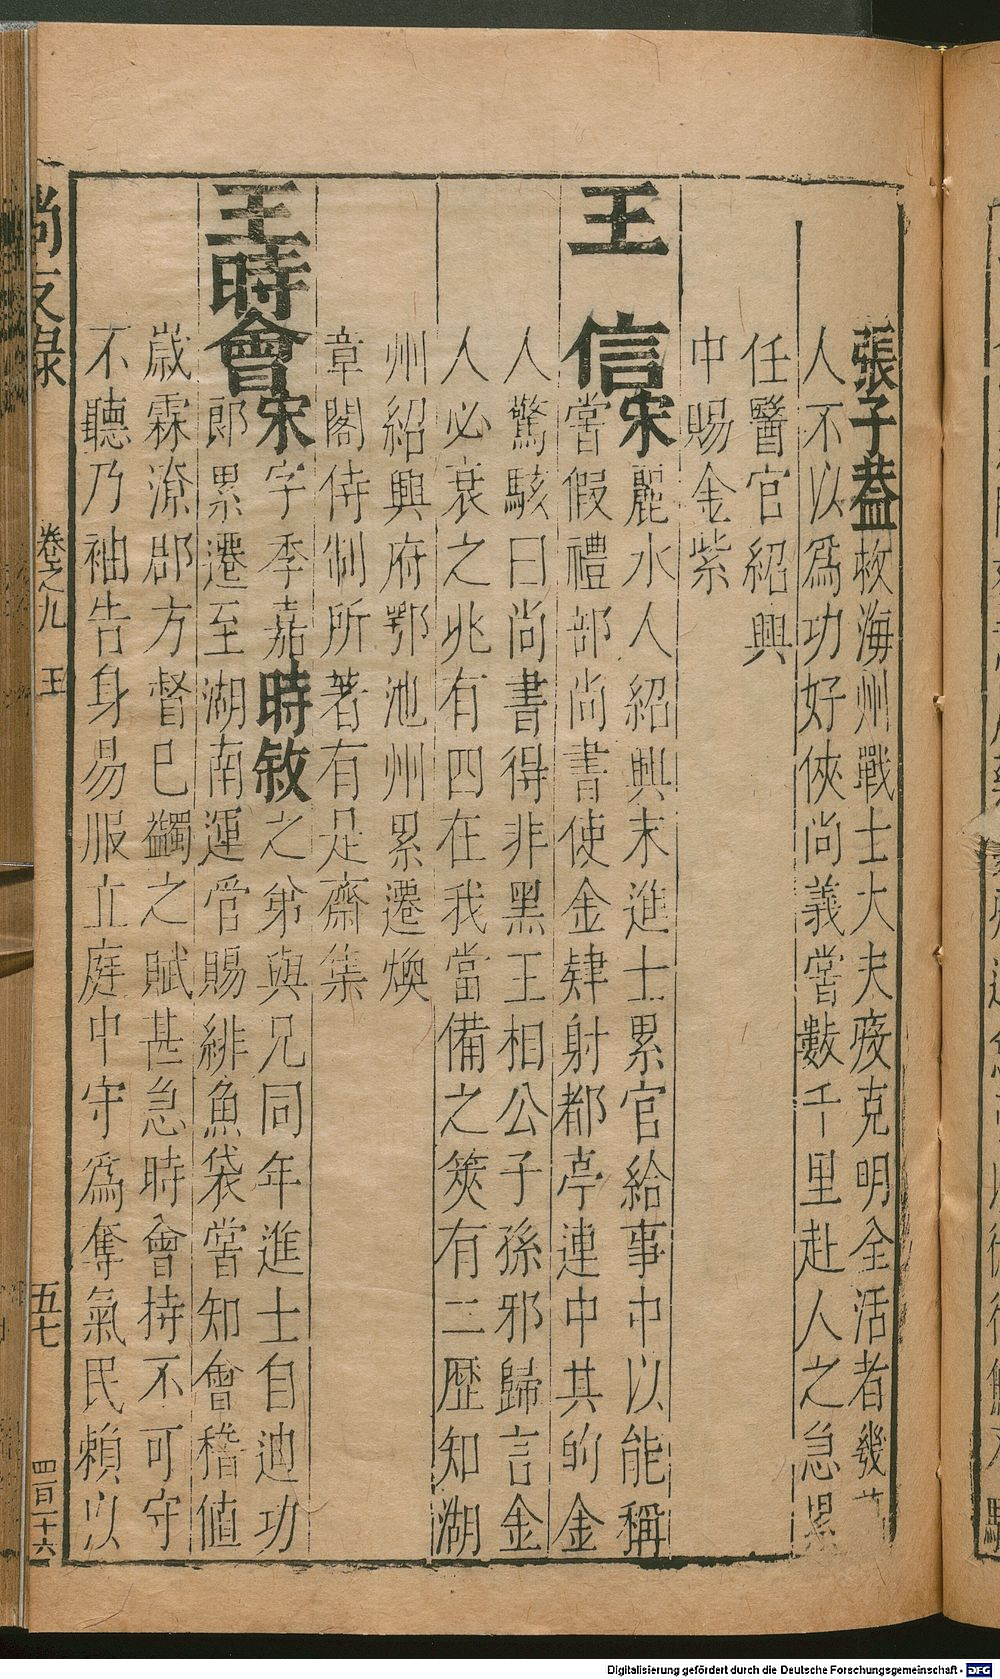 張子葢救海州戰士大夫疲克明全活者幾
人不以爲功好俠尚義嘗數千里赴人之急累
任醫官紹興
中賜金紫
王信宋麗水人紹興末進士累官給事中以能稱
嘗假禮部尚書使金肄射都亭連中其的金
人驚駭曰尚書得非黑王相公子孫邪歸言金
人必衰之兆有四在我當備之筴有二歷知湖
州紹興府鄂池州累遷煥
章閣侍制所著有是齋集
王時會宋字季嘉時敘之弟與兄同年進士自迪功
郎累遷至湖南運管賜緋魚袋嘗知會稽値
歲霖潦郡方督已蠲之賦甚急時會持不可守
不聽乃袖告身易服立庭中守爲奪氣民頼以
尚友錄 卷之九 王 五七 四百二十六
Digitalisierung gefördert durch die Deutsche Forschungsgemeinschaft - DFG